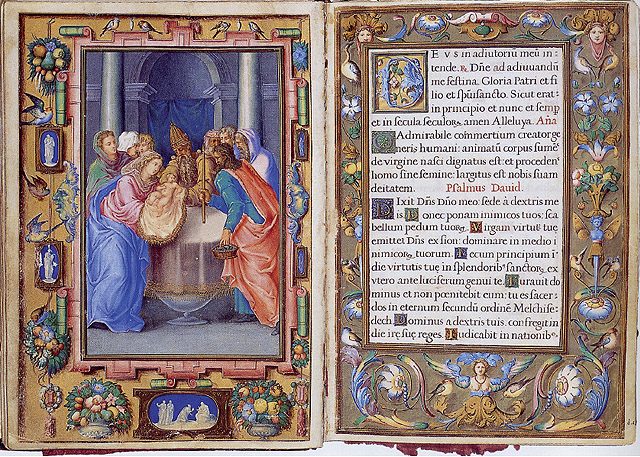 Eus in adiutoriũ meũ in:
tende. R. Dñe ad adiuuandũ
me festina. Gloria Patri et fi
lio et spũi sancto. Sicut erat
in principio et nunc et semp
et in secula seculor, amen Alleluya. Aña
Admirabile commertium creator ge
neris humani: animatũ corpus sumẽs
de virgine nasci dignatus est: et proceden
homo sine semine: largitus est nobis suam
deitatem. Psalmus Dauid.
Dixit Dñs Dño meo: sede à dextris me
is. Donec ponam inimicos tuos: sca
bellum pedum tuor. Virgam virtut tuę
emittet Dñs ex sion: dominare in medio i
nimicor, tuorum. Tecum principium i
die virtutis tuę in splendorib sanctor, ex
vtero ante luciferum genui te. Iurauit do
minus et non pœnitebit eum: tu es sacer:
dos in eternum secundũ ordinẽ Melchise:
dech. Dominus a dextris tuis. confregit in
die irę suę reges. Iudicabit in nationib,